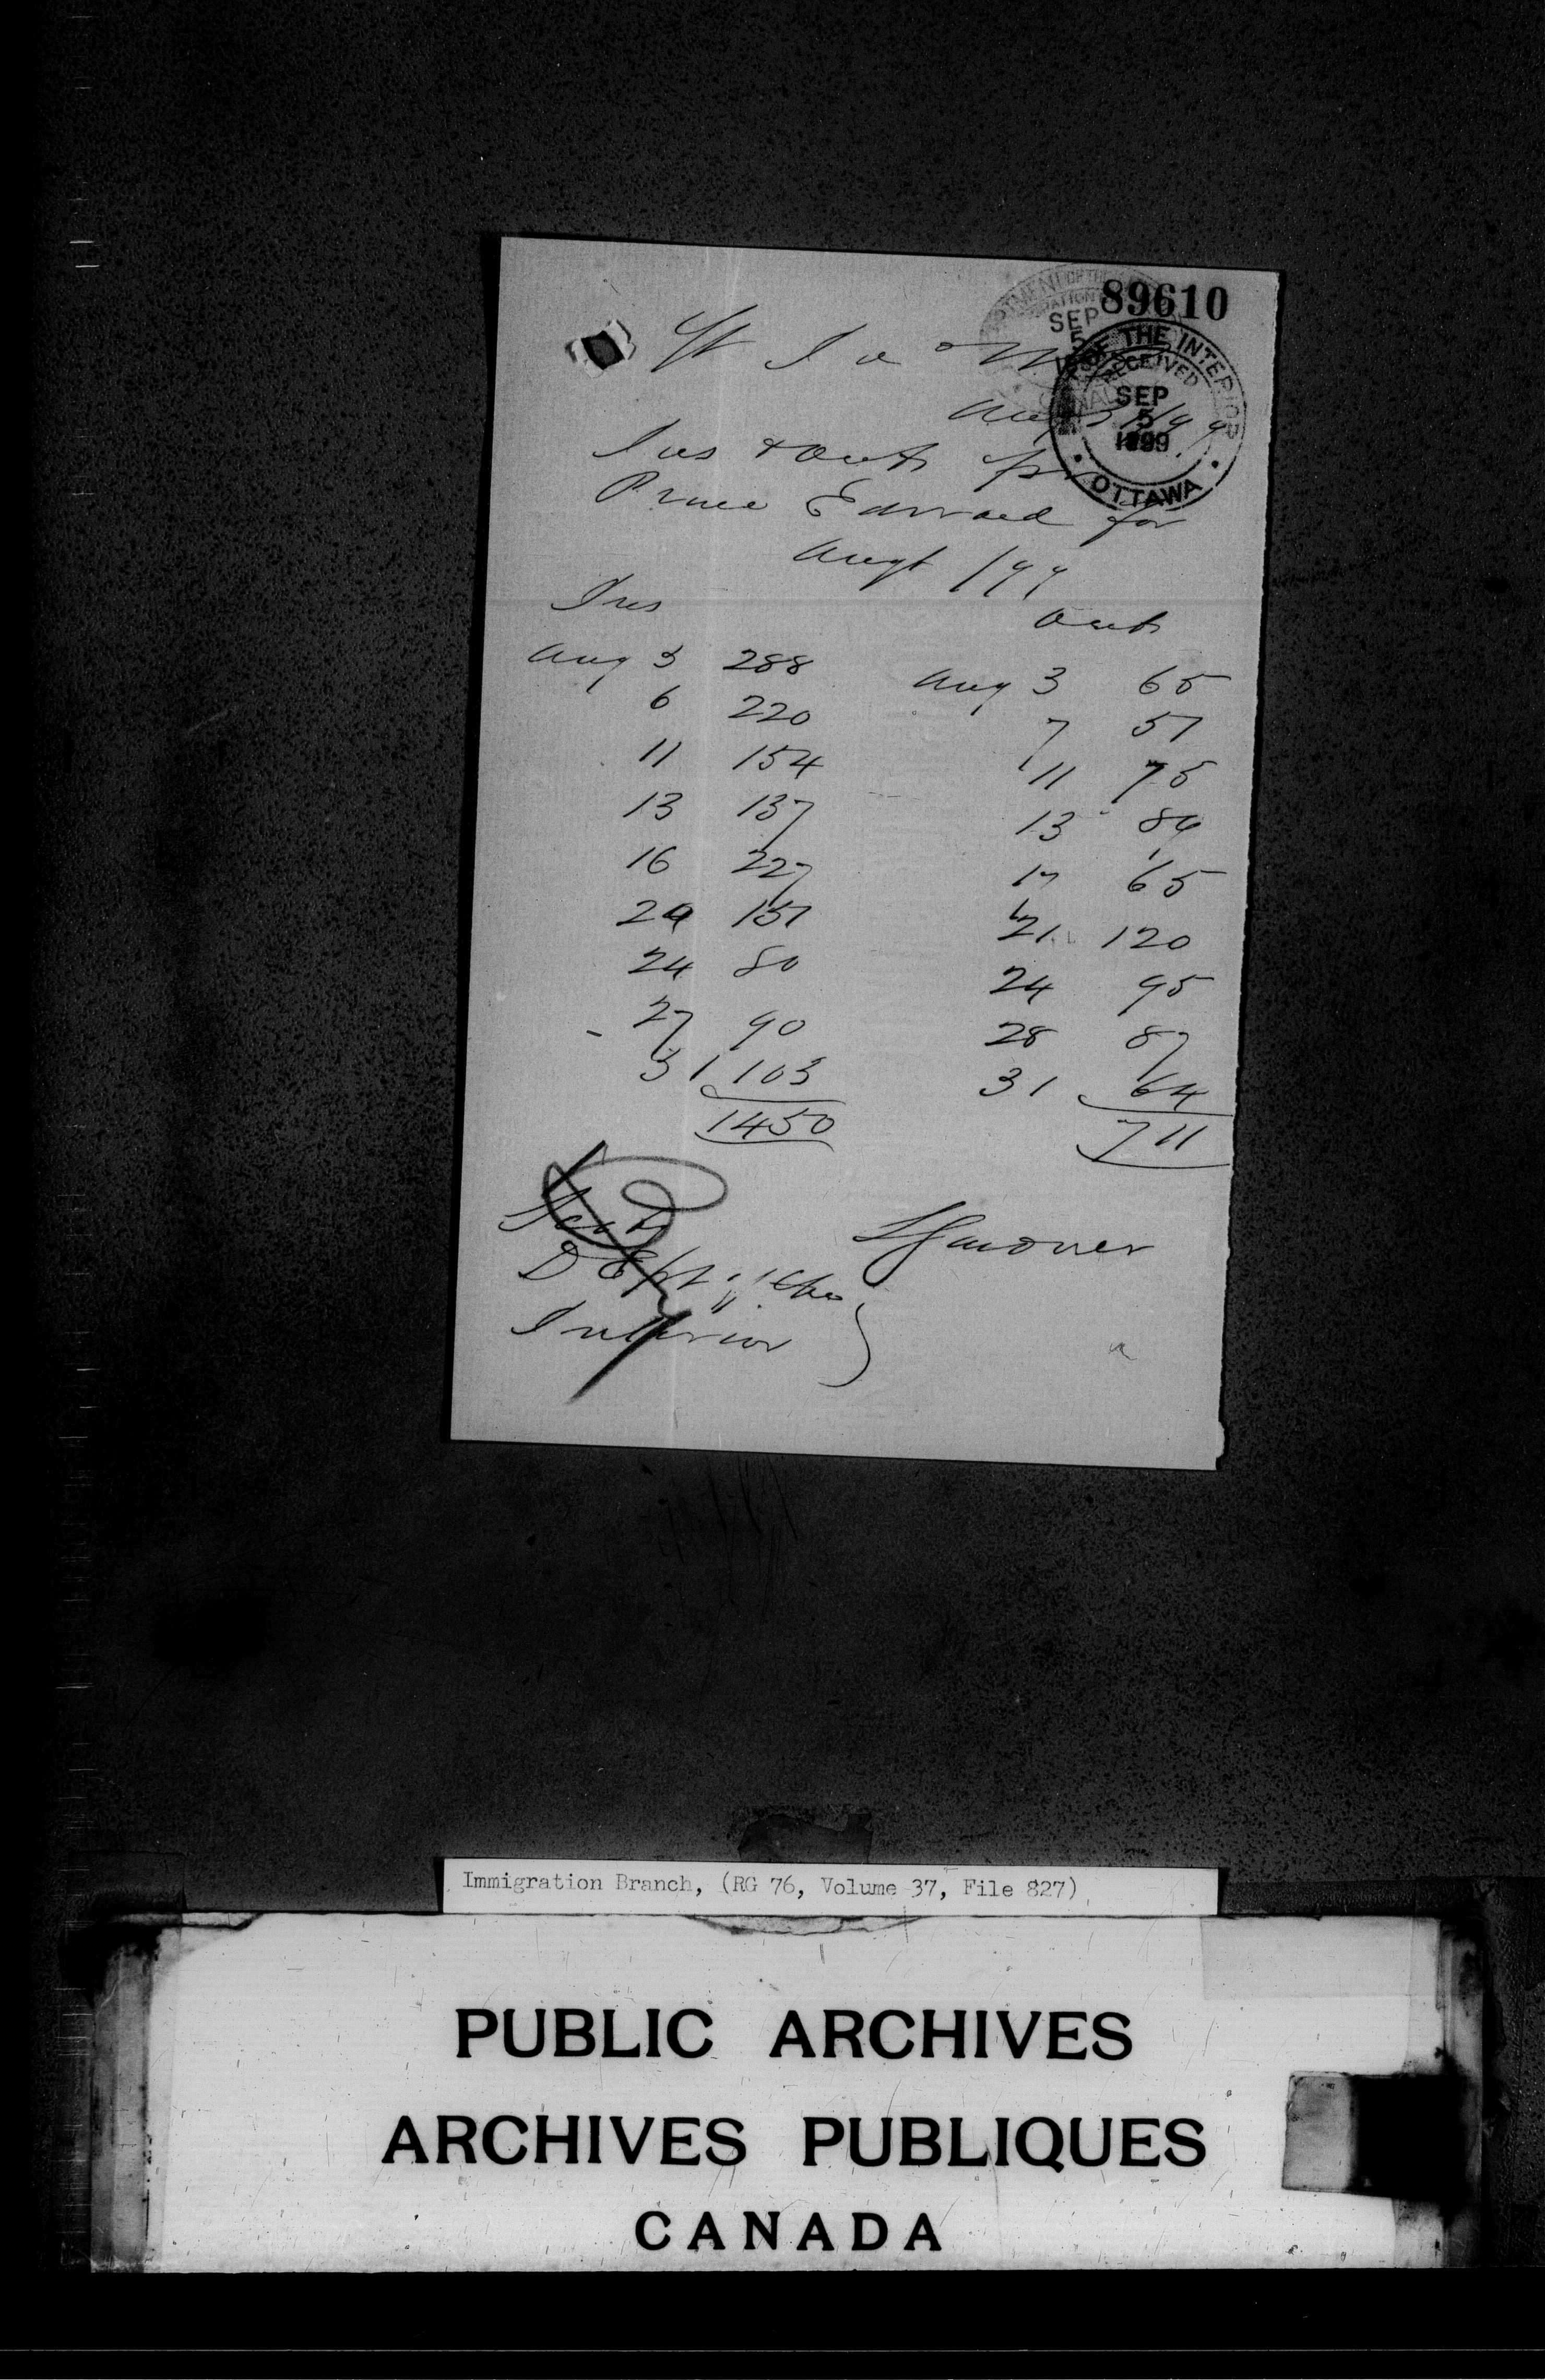 89610
St John
DEPARTMENT OF THE INTERIOR
RECEIVED
SEP
5
1899
OTTAWA
Aug 31/99
Ins & Outs pr
Prince Edward for
Augt /99
Ins
Outs
Aug 3 288 Aug 3 65
6 220 7 57
11 154 11 75
13 137 13 84
16 227 17 65
20 151 21 120
24 80 24 95
27 90 28 87
31 103 31 64
1450 711
Secty
Dept of the
Interior
Gardner
Immigration Branch, (RG 76, Volume 37, File 827)
PUBLIC ARCHIVES
ARCHIVES PUBLIQUES
CANADA